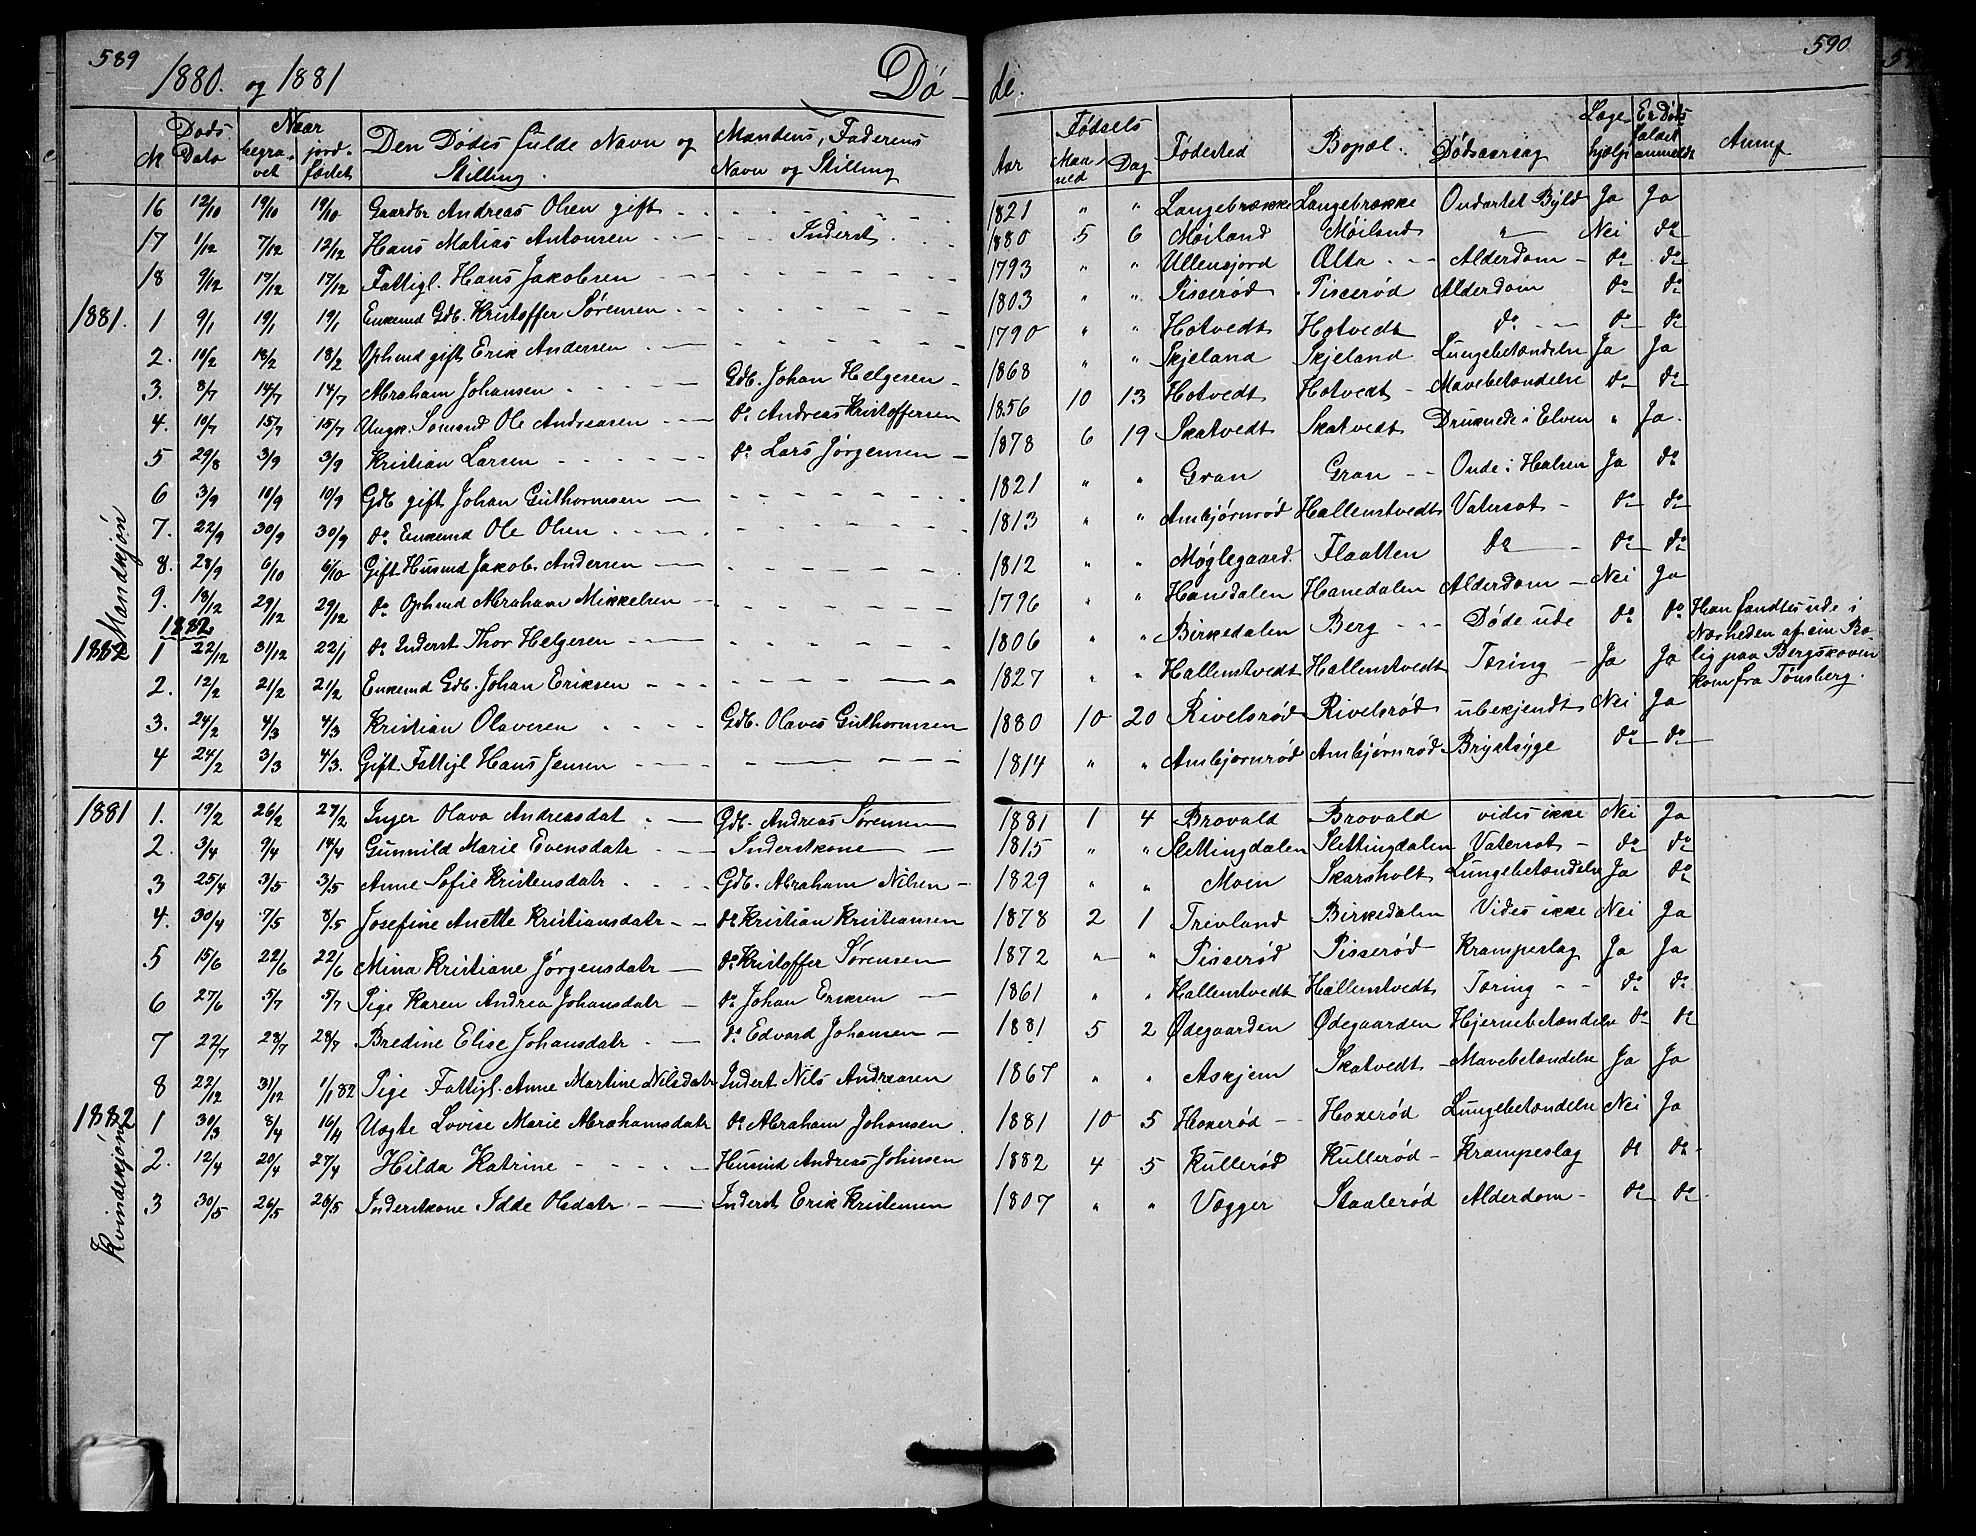 589
1880. og 1881
Dø- de.
590
№ | Døds Dato | Naar begravet | jordfæstet | Den Dødes fulde Navn og Stilling. | Mandens, Faderens Navn og Stilling | Aar | Fødsels Maaned | Dag | Fødested | Bopæl. | Dødsaarsag | Lægehjælp | Er Dødsfaldet anmeldt | Anmf
Mandkjøn
16 12/10 19/10 19/10 Gaardbr Andreas Olsen gift 1821 " " Langebrække Langebrække Ondartet Byld Ja Ja
17 1/12 7/12 12/12 Hans Matias Antonsen Inderst 1880 5 6 Møiland Møiland " Nei do
18 9/12 17/12 17/12 Fattigl. Hans Jakobsen 1793 " " Ullensjord Alta Alderdom do do
1881. 1 9/1 19/1 19/1 Enkemd Gdb. Kristoffer Sørensen 1803 " " Pisserød Pisserød Alderdom do do
2. 10/2 18/2 18/2 Ophmd gift Erik Andersen 1790 " " Hotvedt Hotvedt do do do
3. 8/7 14/7 14/7 Abraham Johansen Gdb. Johan Helgesen 1868 " " Skjeland Skjeland Lungebetændelse Ja Ja
4. 10/7 15/7 15/7 Ungk. Sømand Ole Andreasen do Andreas Kristoffersen 1856 10 13 Hotvedt Hotvedt Mavebetændelse do do
5 29/8 3/9 3/9 Kristian Larsen do Lars Jørgensen 1878 6 19 Skatvedt Skatvedt Druknede i Elven " Ja.
6 3/9 10/9 10/9 Gdb gift Johan Guthormsen 1821 " " Gran Gran Onde i Halsen Ja do
7. 22/9 30/9 30/9 do Enkemd Ole Olsen 1813 " " Ambjørnrød Hallenstvedt Vatersot do do
8. 28/9 6/10 6/10 Gift Husmd Jakob Andersen 1812 " " Møglegaard. Flaatten do do do
9. 18/12 29/12 29/12 do Ophmd Abraham Mikkelsen 1796 " " Hanedalen Hanedalen Alderdom Nei Ja
1882
1882 1 22/12 31/12 22/1 do Inderst Thor Helgesen 1806 " " Birkedalen Berg Døde ude do do Han fandtes ude i Nærheden af sin Bolig paa Bergskoven kom fra Tønsberg.
2. 12/2 21/2 21/2 Enkemd Gdb. Johan Eriksen 1827 " " Hallenstvedt Hallenstvedt Tæring Ja Ja
3. 24/2 4/3 4/3 Kristian Olavesen Gdb. Olaves Guthormsen 1880 10 20 Rivelsrød Rivelsrød ubekjendt Nei Ja
4 24/2 3/3 4/3. Gift Fattigl Hans Jensen 1814 " " Ambjørnrød Ambjørnrød Brystsyge do do
Kvindekjøn
1881 1. 19/2 26/2 27/2 Inger Olava Andreasdat. Gdb. Andreas Sørensen 1881 1 4 Brovald Brovald vides ikke Nei Ja
2. 3/4 9/4 14/4 Gunnild Marie Evensdatr Inderstkone 1815 " " Slettingdalen Slettingdalen Vatersot do do
3 25/4 3/5 3/5 Anne Sofie Kristensdatr Gdb. Abraham Nilsen 1829 " " Moen Skarsholt Lungebetændelse Ja do
4. 30/4 7/5 8/5 Josefine Anette Kristiansdatr do Kristian Kristiansen 1878 2 1 Trevland Birkedalen Vides ikke Nei Ja
5 15/6 22/6 22/6 Mina Kristiane Jørgensdatr do Kristoffer Sørensen 1872 " " Pisserød Pisserød Krampeslag Ja Ja
6 27/6 5/7 5/7 Pige Karen Andrea Johansdatr do Johan Eriksen 1861 " " Hallenstvedt Hallenstvedt Tæring do do
7 22/7 28/7 28/7 Bredine Elise Johansdatr do Edvard Johansen 1881 5 2 Ødegaarden Ødegaarden Hjernebetændelse do do
8 22/12 31/12 1/1 82 Pige Fattigl. Anne Martine Nilsdatr Inderst Nils Andreasen 1867 " " Askjem Skatvedt Mavebetændelse Ja Ja
1882 1 30/3 8/4 16/4 Uægte Lovise Marie Abrahamsdatr do Abraham Johansen. 1881 10 5 Hoxerød Hoxerød Lungebetændelse Nei Ja
2. 12/4 20/4 27/4 Hilda Katrine Husmd Andreas Johnsen 1882 4 5 Kullerød Kullerød Krampeslag do do
3 30/5 26/5 26/5 Inderstkone Idde Olsdatr Inderst Erik Kristensen 1807 " " Vegger Staalerød Alderdom do do